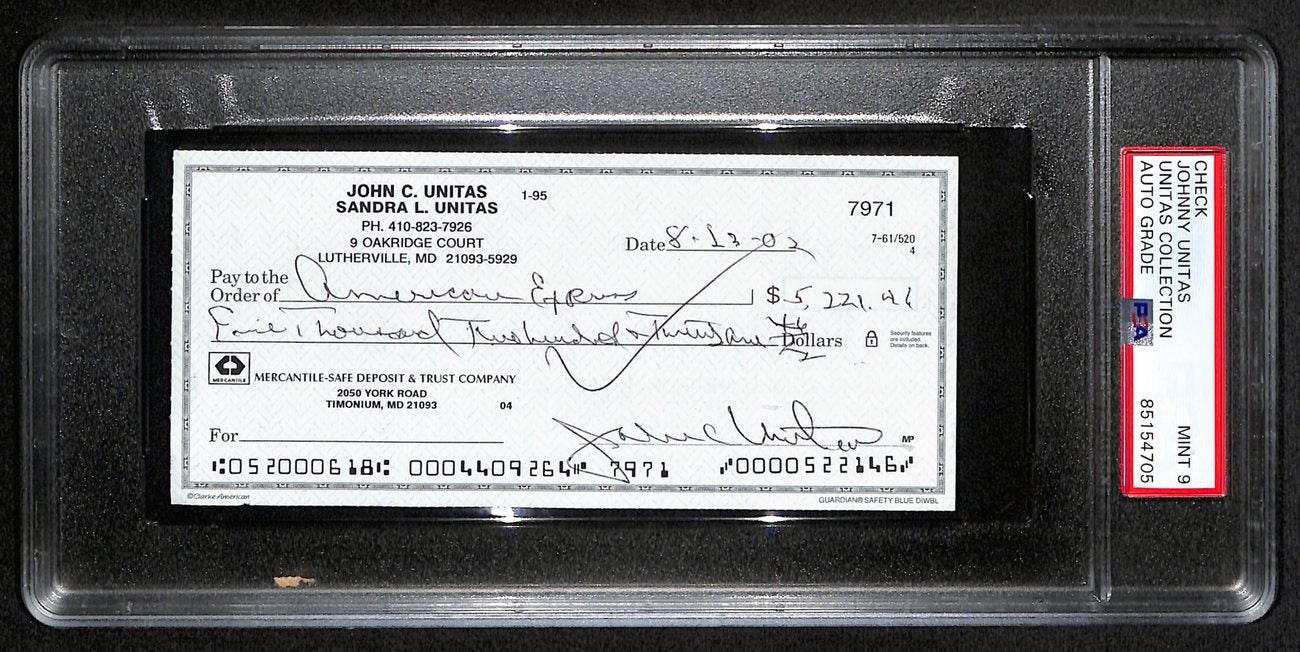 JOHN C. UNITAS 1-95
SANDRA L. UNITAS
PH. 410-823-7926
9 OAKRIDGE COURT
LUTHERVILLE, MD 21093-5929
7971
7-61/520
4
Date 8-13-02
Pay to the
Order of American Express $ 5,221.46
Five Thousand Dollars
Security features
are included.
Details on back.
MERCANTILE
MERCANTILE-SAFE DEPOSIT & TRUST COMPANY
2050 YORK ROAD
TIMONIUM, MD 21093 04
For
John C Unitas MP
⑆052000618⑆ 0004409264⑈ 7971 ⑈0000522146⑈
©Clarke American
GUARDIAN® SAFETY BLUE DIWBL
CHECK
JOHNNY UNITAS
UNITAS COLLECTION
AUTO GRADE MINT 9
85154705
PSA